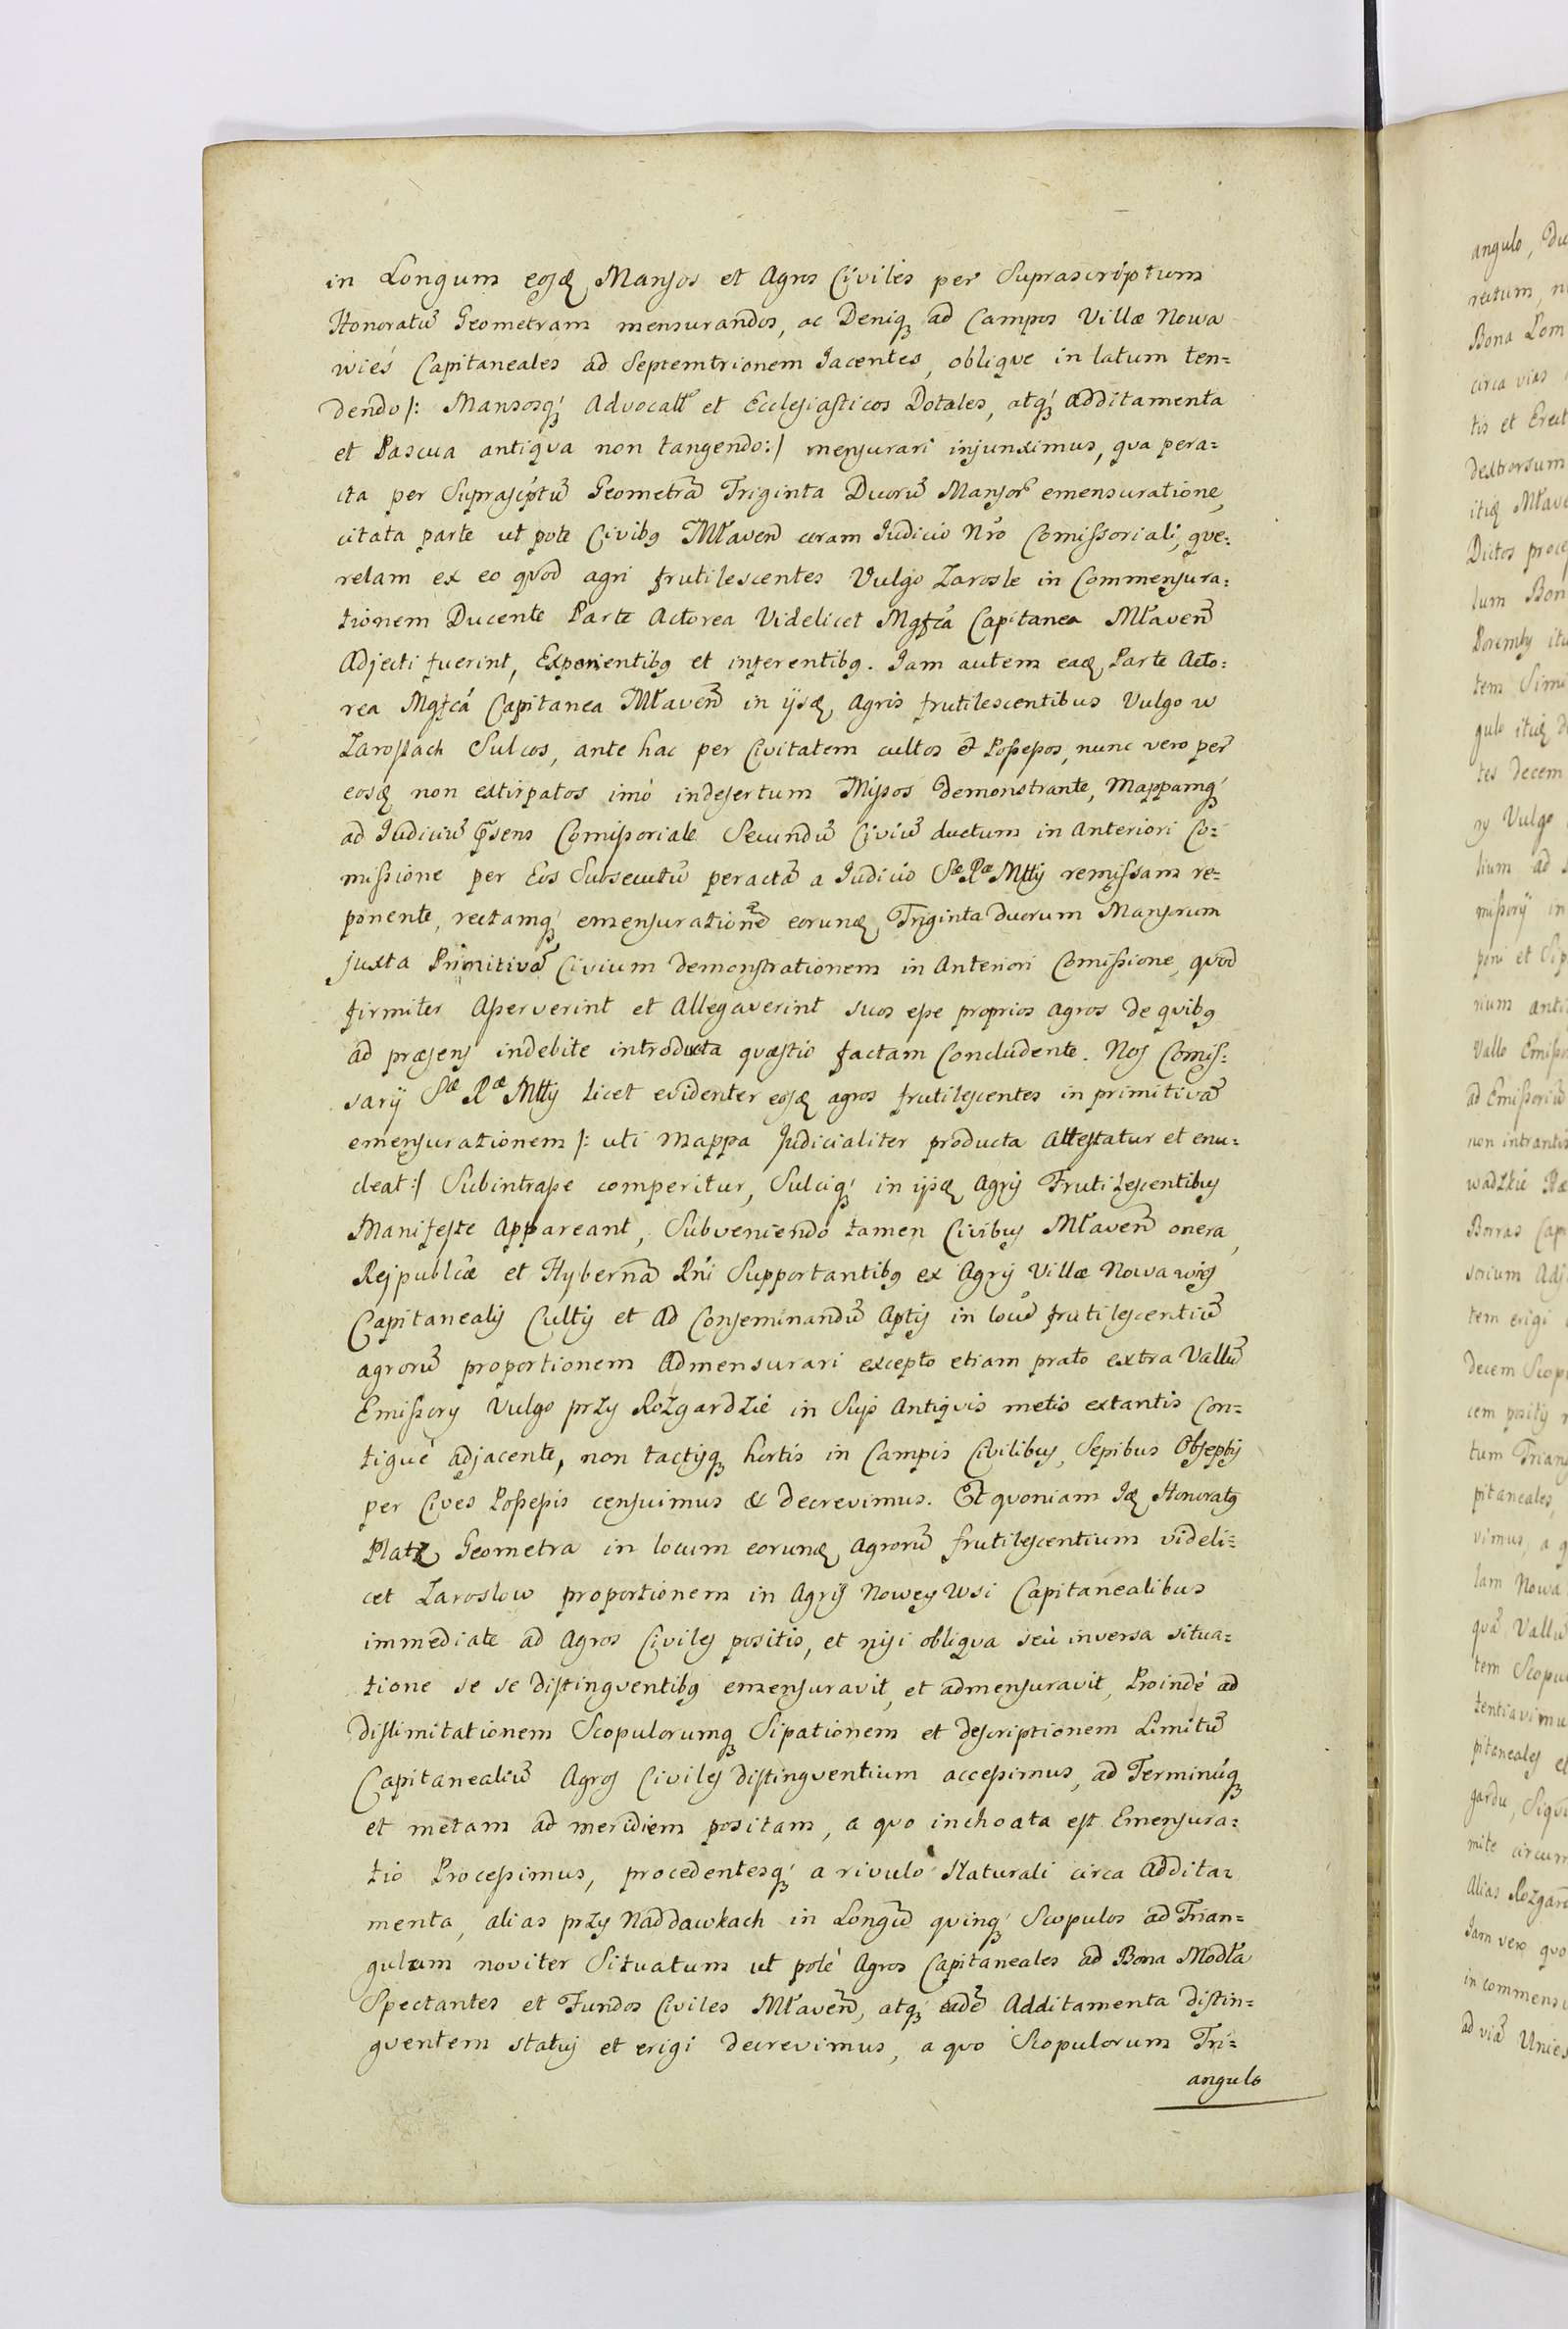 in Longum eosq́ Mansos et Agros Civiles per Suprascriptum
Honoratū Geometram mensurandos, ac Deniq́ ad Campos Villæ Nowa
wieś Capitaneales ad Septemtrionem Jacentes, oblique in latum ten=
dendo /: Mansosq́ Advocatt et Ecclesiasticos Dotales, atq́ additamenta
et Pascua antiqva non tangendo :/ mensurari injunximus, qva pera=
cta per Suprascptū Geometrā Triginta Duorū Mansor emensuratione,
citata parte ut pote Civibq Mławen̄ coram Judicio Nr̄o Comissoriali, que=
relam ex eo qvod agri frutilescentes Vulgo Zarosle in Commensura=
tionem Ducente Parte Actorea Videlicet Mgfca Capitanea Mławen̄
Adjecti fuerint, Exponentibq et inferentibq. Jam autem eadq Parte Acto=
rea Mgfcá Capitanea Mławen̄ in ijsdq Agris frutilescentibus Vulgo w
Zaroslach Sulcos, ante hac per Civitatem cultos et Possessos, nunc vero per
eosdq non extirpatos imò in desertum Missos demonstrante, Mappamq́
ad Judiciū Pn̄sens Comissoriale Secundū Civiū ductum in Anteriori Co=
missione per Eos Subsecutū peractā a Judicio Sæ Ræ Mttis remissam re=
ponente, rectamq́ emensurationē eorundq Triginta duorum Mansorum
juxta Primitivā Civium demonstrationem in Anteriori Comissione, qvod
firmiter Asserverint et Allegaverint suos esse proprios agros de qvibq
ad præsens indebite introducta qvæstio factam Concludente. Nos Comis=
sarij Sæ Ræ Mttis licet evidenter eosdq agros frutilescentes in primitivā
emensurationem /: uti Mappa Judicialiter producta Attestatur et enu=
cleat :/ Subintrasse comperitur, Sulciq́ in ijsdq Agris Frutilescentibus
Manifeste Appareant, Subveniendo tamen Civibus Mławen̄ onera,
Reipublicæ et Hybernā Rni Supportantibq ex Agris Villæ Nowa wieś
Capitanealis Cultis et ad Conseminandū Aptis in locū frutilescentiū
agrorū proportionem Admensurari excepto etiam prato extra Vallū
Emissory Vulgo przy Rozgardzie in Suis Antiqvis metis extantis Con=
tigué adjacente, non tactisq́ hortis in Campis Civilibus, Sepibus Obseptis
per Cives Possessis censuimus & decrevimus. Et qvoniam Jdq Honoratq
Platz Geometra in locum eorundq Agrorū frutilescentium videli=
cet Zaroslow proportionem in Agris Nowey Wsi Capitanealibus
immediate ad Agros Civiles positis, et nisi obliqva seù inversa situa=
tione se se distingventibq emensuravit, et admensuravit, Proindé ad
dislimitationem Scopulorumq́ Sipationem et descriptionem Limitū
Capitanealiū Agros Civiles distingventium accessimus, ad Terminúq
et metam ad meridiem positam, a quo inchoata est Emensura=
tio Processimus, procedentesq́ a rivulo Naturali circa addita=
menta, alias przy Naddawkach in Longū qvinq́ Scopulos ad Trian=
gulum noviter Situatum ut poté Agros Capitaneales ad Bona Modła
Spectantes et Fundos Civiles Mławen̄, atq́ eadē Additamenta distin=
gventem statui et erigi decrevimus, a quo Scopulorum Tri=
angulo